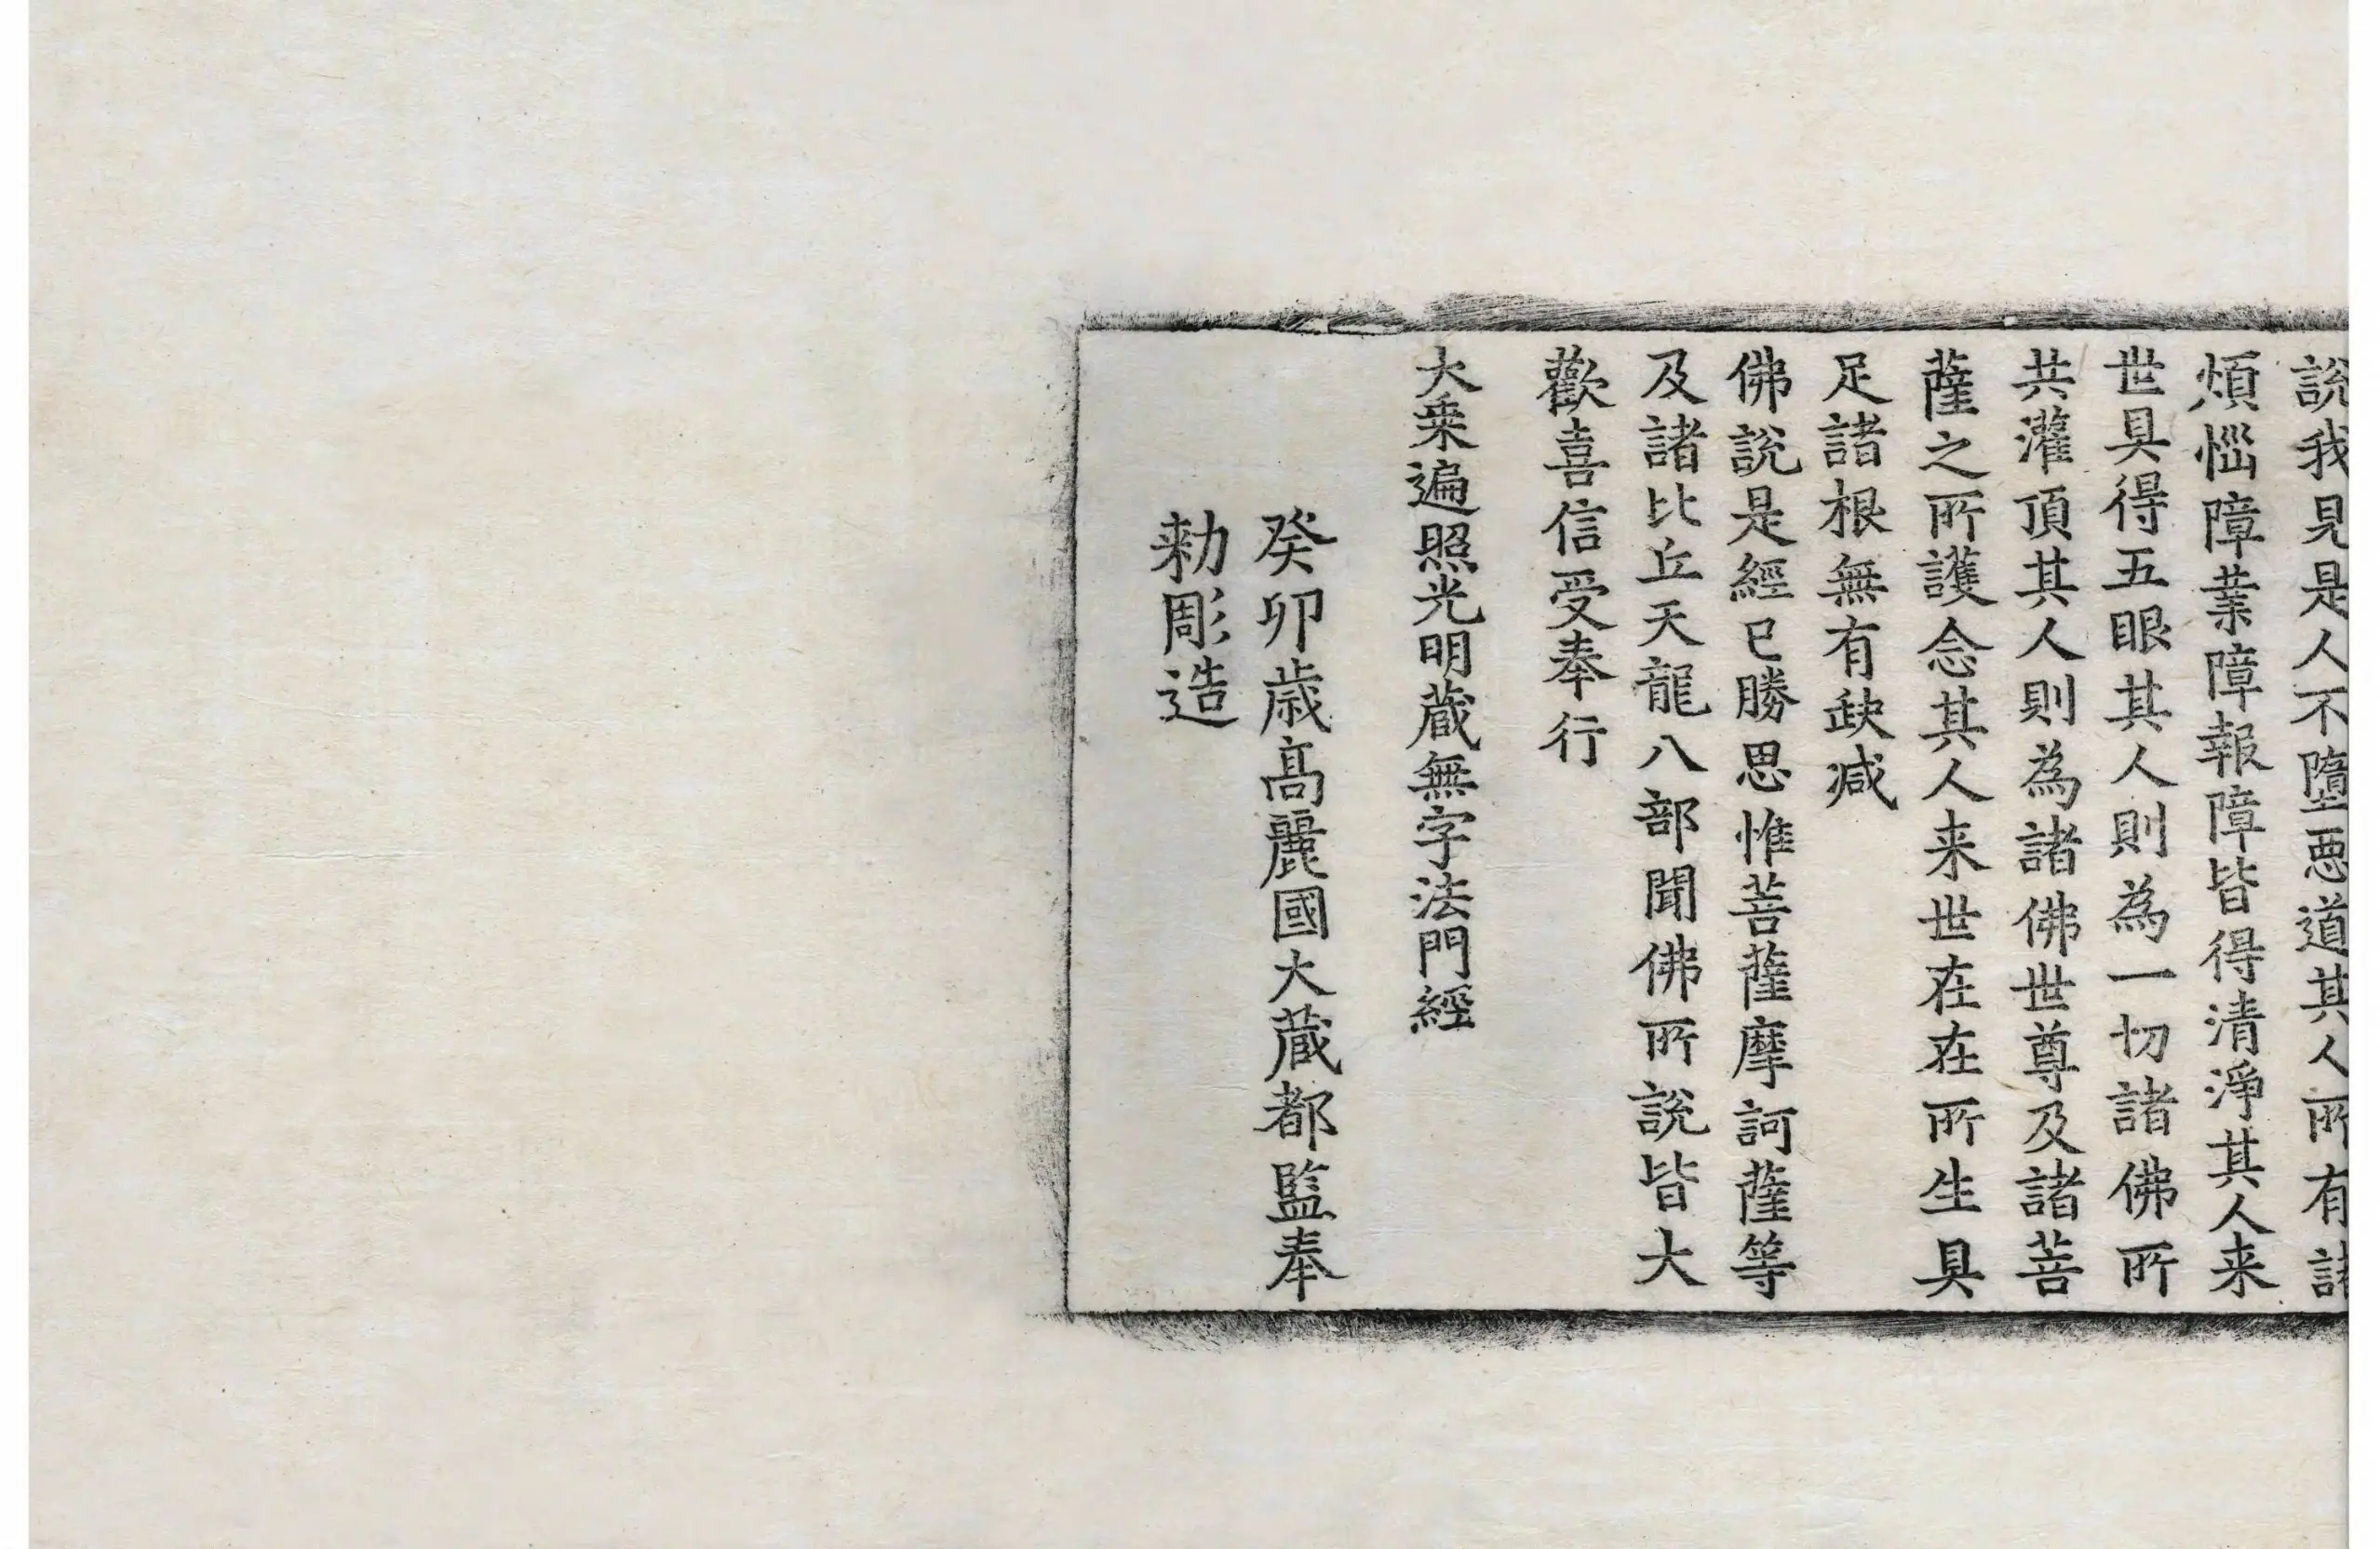 説我見是人不墮惡道其人所有諸
煩惱障業障報障皆得清淨其人来
世具得五眼其人則為一切諸佛所
共灌頂其人則為諸佛世尊及諸菩
薩之所護念其人来世在在所生具
足諸根無有缺减
佛說是經已勝思惟菩薩摩訶薩等
及諸比丘天龍八部聞佛所說皆大
歡喜信受奉行
大乗遍照光明蔵無字法門經
癸卯歳髙麗國大蔵都監奉
勑彫造